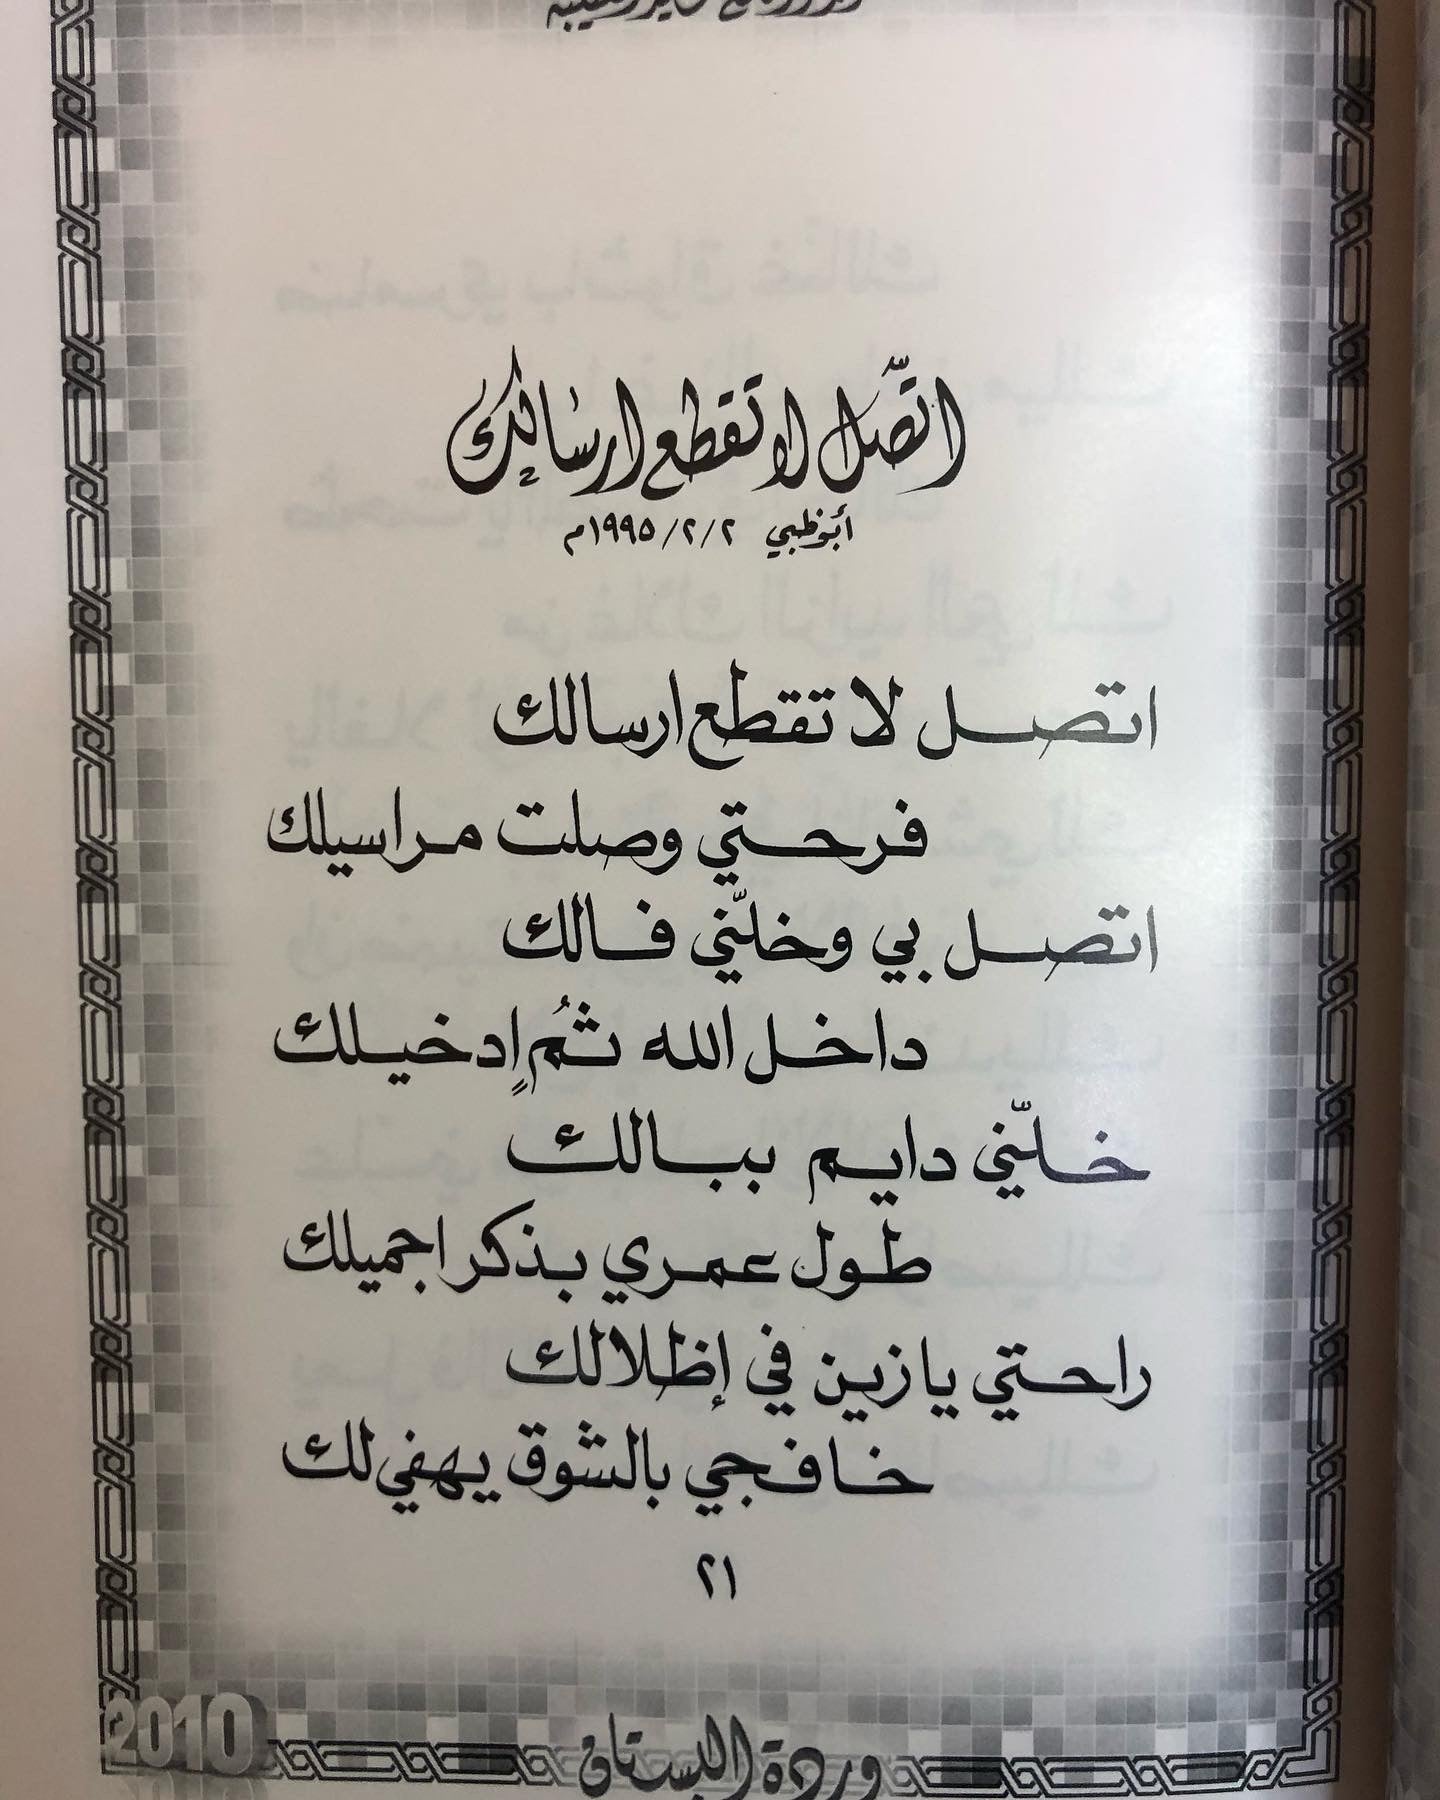 اتّصل لا تقطع ارسالك
أبوظبي ٢/٢/١٩٩٥م
اتصل لا تقطع ارسالك
فرحتي وصلت مراسيلك
اتصل بي وخلّني فالك
داخل الله ثُم إدخيلك
خلّني دايم ببالك
طول عمري بذكر اجميلك
راحتي يازين في إظلالك
خافجي بالشوق يهفي لك
٢١
2010
وردة البستان